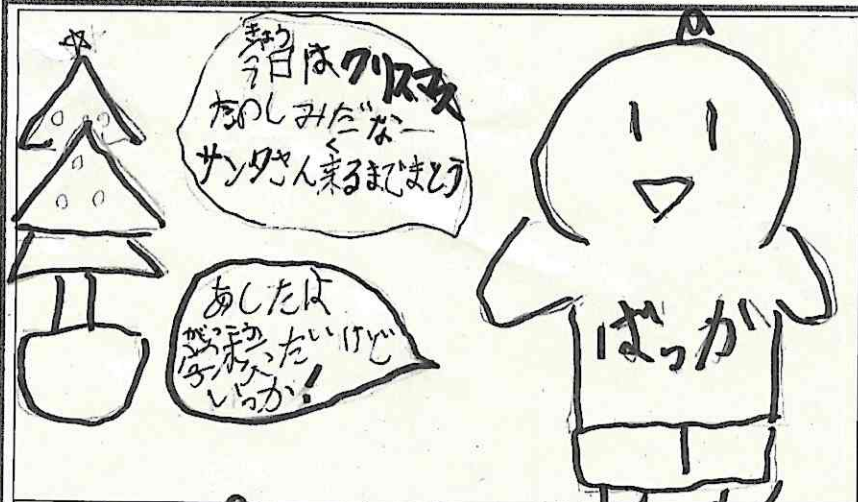 今日はクリスマス
たのしみだなー
サンタさん来るまでまとう
あしたは
学校だけど
いっか!
ばっか